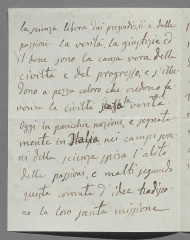 la scienza libera dai pregiudizi e dalle
passioni. La verità, la giustizia ed
il bene sono la causa vera della
civiltà e del progresso, e s'illu-
dono a pezza coloro che credono fa-
vorire la civiltà senza verità.
Oggi in parecchie nazioni, e segnata-
mente in Italia nei campi sere-
ni della scienza spira l'alito
delle passioni, e molti seguendo
questa corrente d'idee tradisco-
no la loro santa missione